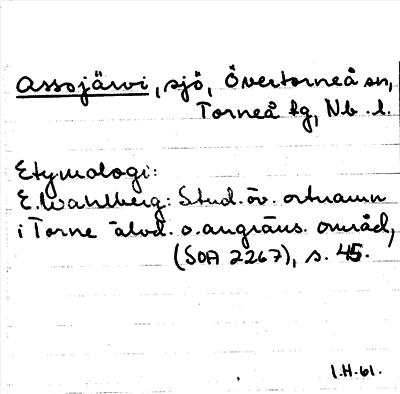 Assojärvi, sjö, Övertorneå sn,
Torneå tg, Nb. l.
Etymologi:
E. Wahlberg: Stud. öv. ortnamn
i Torne älvd. o. angräns. områd,
(SOA 2267), s. 45.
I.H.61.